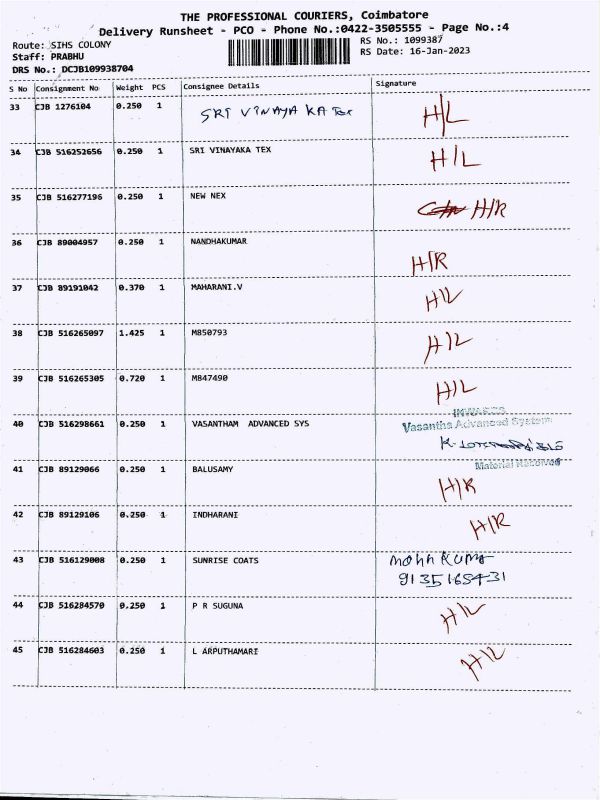 THE PROFESSIONAL COURIERS, Coimbatore
Delivery Runsheet - PCO - Phone No.:0422-3505555 - Page No.:4
Route: SIHS COLONY
RS No.: 1099387
Staff: PRABHU
RS Date: 16-Jan-2023
DRS No.: DCJB109938704
S No Consignment No Weight PCS Consignee Details Signature
33 CJB 1276104 0.250 1 SRI VINAYAKA Tex H/L
34 CJB 516252656 0.250 1 SRI VINAYAKA TEX H/L
35 CJB 516277196 0.250 1 NEW NEX H/R
36 CJB 89004957 0.250 1 NANDHAKUMAR H/R
37 CJB 89191042 0.370 1 MAHARANI.V H/L
38 CJB 516265097 1.425 1 MB50793 H/L
39 CJB 516265305 0.720 1 MB47490 H/L
40 CJB 516298661 0.250 1 VASANTHAM ADVANCED SYS
INWARDS
Vasantha Advanced Systems
Material Received
41 CJB 89129066 0.250 1 BALUSAMY H/R
42 CJB 89129106 0.250 1 INDHARANI H/R
43 CJB 516129008 0.250 1 SUNRISE COATS
9135165431
44 CJB 516284570 0.250 1 P R SUGUNA H/L
45 CJB 516284603 0.250 1 L ARPUTHAMARI H/L